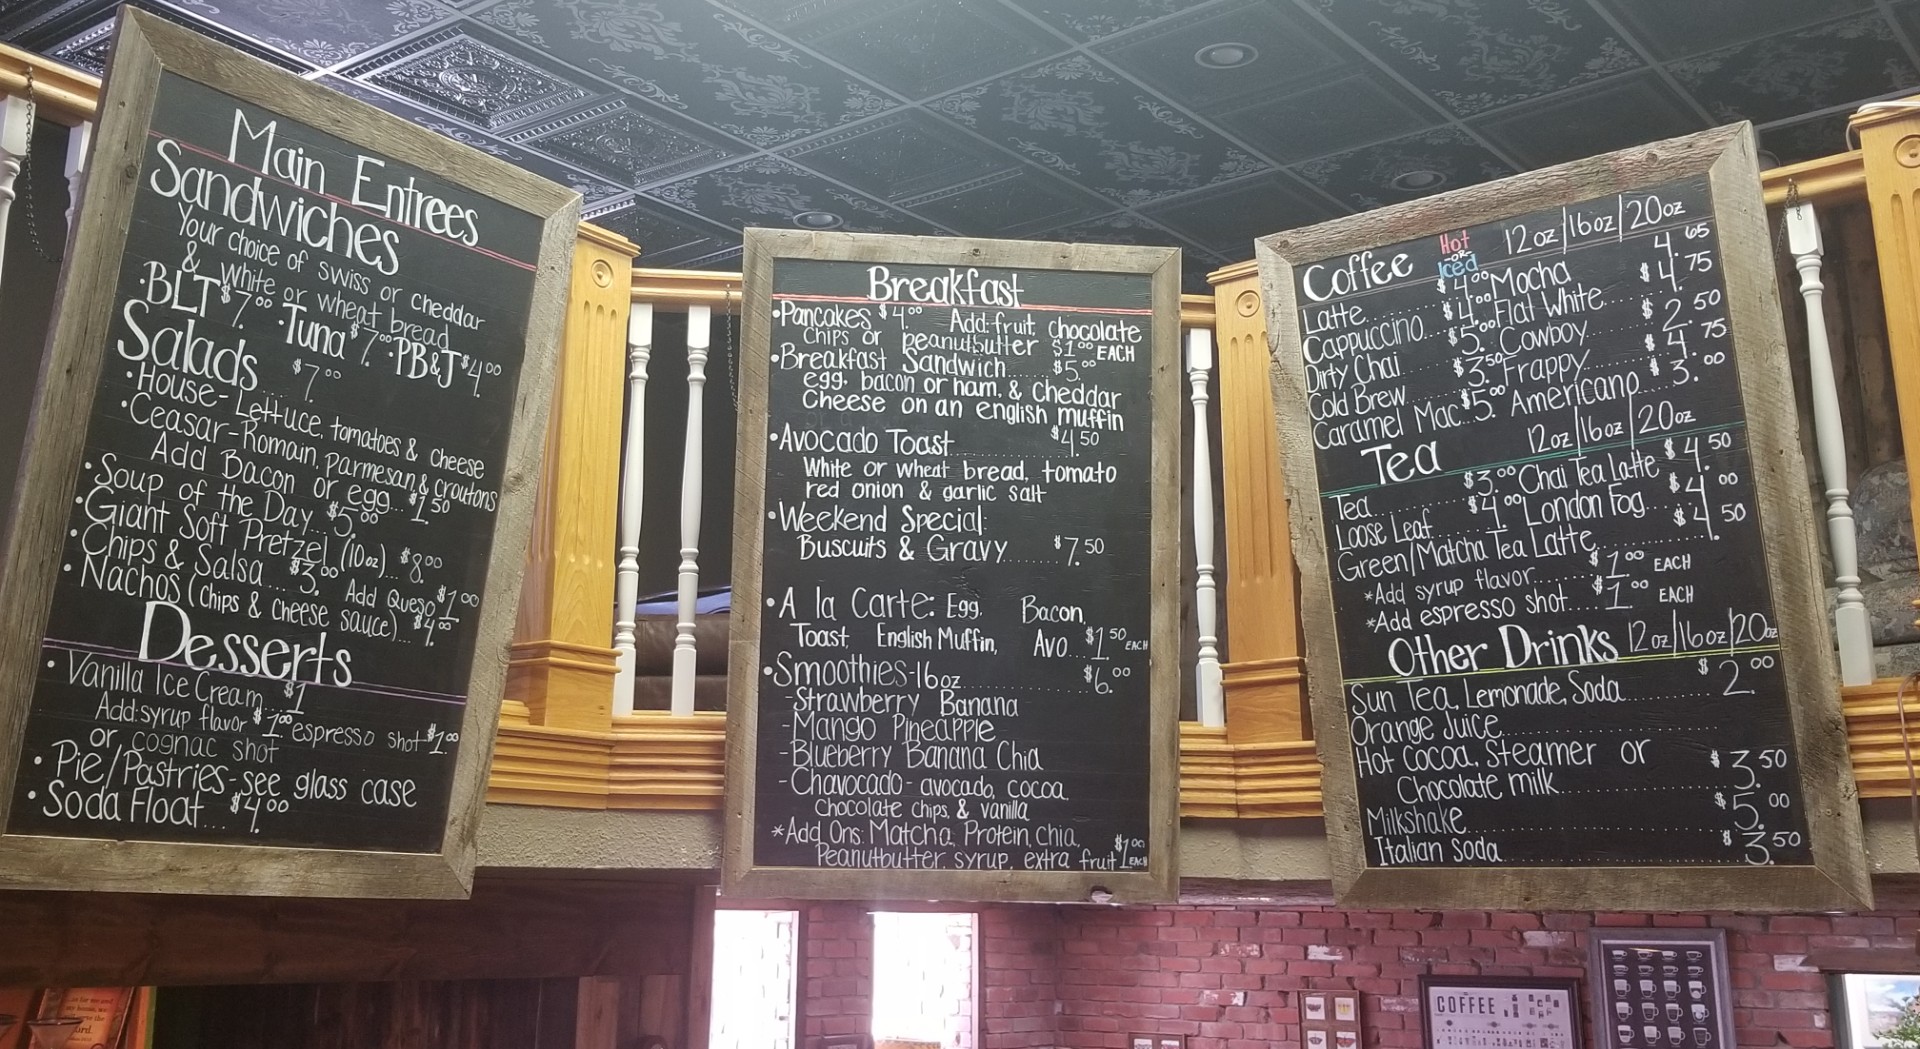 Main Entrees
Sandwiches
Your choice of swiss or cheddar
& white or wheat bread
·BLT $7.00 ·Tuna $7.00 ·PB&J $4.00
Salads... $7.00
·House-Lettuce, tomatoes & cheese
·Ceasar-Romain, parmesan, & croutons
Add Bacon or egg... $1.50
·Soup of the Day... $5.00
·Giant Soft Pretzel (10oz)... $8.00
·Chips & Salsa... $3.00 Add Queso $1.00
·Nachos (chips & cheese sauce)... $4.00
Desserts
·Vanilla Ice Cream... $1
Add: syrup flavor $1.00 espresso shot $1.00
or cognac shot
·Pie/Pastries-see glass case
·Soda Float... $4.00
Breakfast
·Pancakes $4.00 Add: fruit, chocolate
chips or peanutbutter $1.00 EACH
·Breakfast Sandwich...... $5.00
egg, bacon or ham, & Cheddar
Cheese on an english muffin
·Avocado Toast........ $4.50
White or wheat bread, tomato
red onion & garlic salt
·Weekend Special:
Buscuits & Gravy...... $7.50
·A la Carte: Egg, Bacon,
Toast, English Muffin, Avo... $1.50 EACH
·Smoothies-16oz.......... $6.00
-Strawberry Banana
-Mango Pineapple
-Blueberry Banana Chia
-Chavocado-avocado, cocoa,
chocolate chips, & vanilla
*Add Ons: Matcha, Protein, chia,
Peanutbutter, syrup, extra fruit $1.00 EACH
Coffee Hot -or- Iced 12oz/16oz/20oz
Latte...... $4.00 Mocha $4.65
Cappuccino... $4.00 Flat White... $4.75
Dirty Chai $5.00 Cowboy....... $2.50
Cold Brew $3.50 Frappy....... $4.75
Caramel Mac $5.00 Americano $3.00
Tea 12oz/16oz/20oz
Tea........ $3.00 Chai Tea Latte $4.50
Loose Leaf.... $4.00 London Fog... $4.00
Green/Matcha Tea Latte....... $4.50
*Add syrup flavor....... $1.00 EACH
*Add espresso shot.... $1.00 EACH
Other Drinks 12oz/16oz/20oz
Sun Tea, Lemonade, Soda....... $2.00
Orange Juice...........
Hot Cocoa, Steamer or
Chocolate milk......... $3.50
Milkshake............ $5.00
Italian Soda........... $3.50
COFFEE